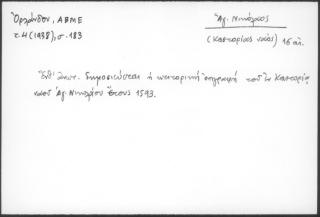 Ὀρλάνδου, ΑΒΜΕ
τ. 4 (1938), σ. 183
Ἁγ. Νικόλαος
(Καστορίας ναός) 16 αἰ.
δημοσιεύεται ἡ κτιτορική ἐπιγραφή τοῦ ἐν Καστορίᾳ
ναοῦ Ἁγ. Νικολάου ἔτους 1593.